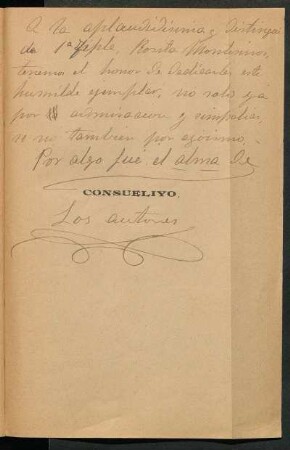 A la aplaudidisima y distingui
da 1ª tiple, Rosita Montesinos,
tenemos el honor de dedicarle este
humilde ejemplar, no solo ya
por admiracion y simpatia,
si no tambien por egoismo.
Por algo fue el alma de
CONSUELIYO.
Los autores